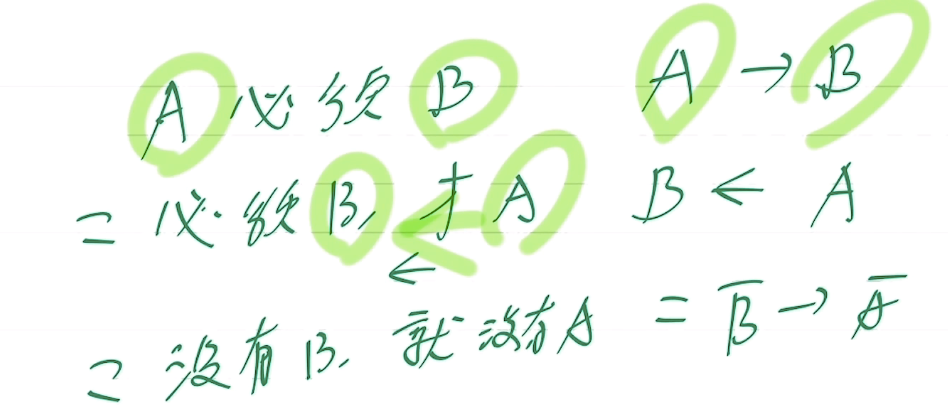 A 必须 B A → B
= 必须 B, 才 A B ← A
←
= 没有 B, 就没有 A = B̅ → A̅